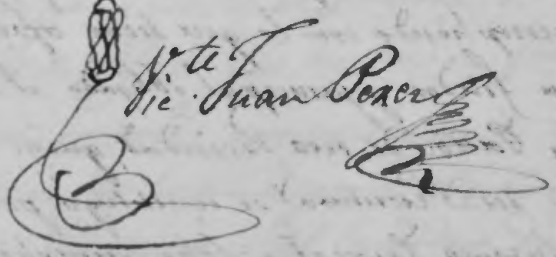 Vic.te Juan Perer